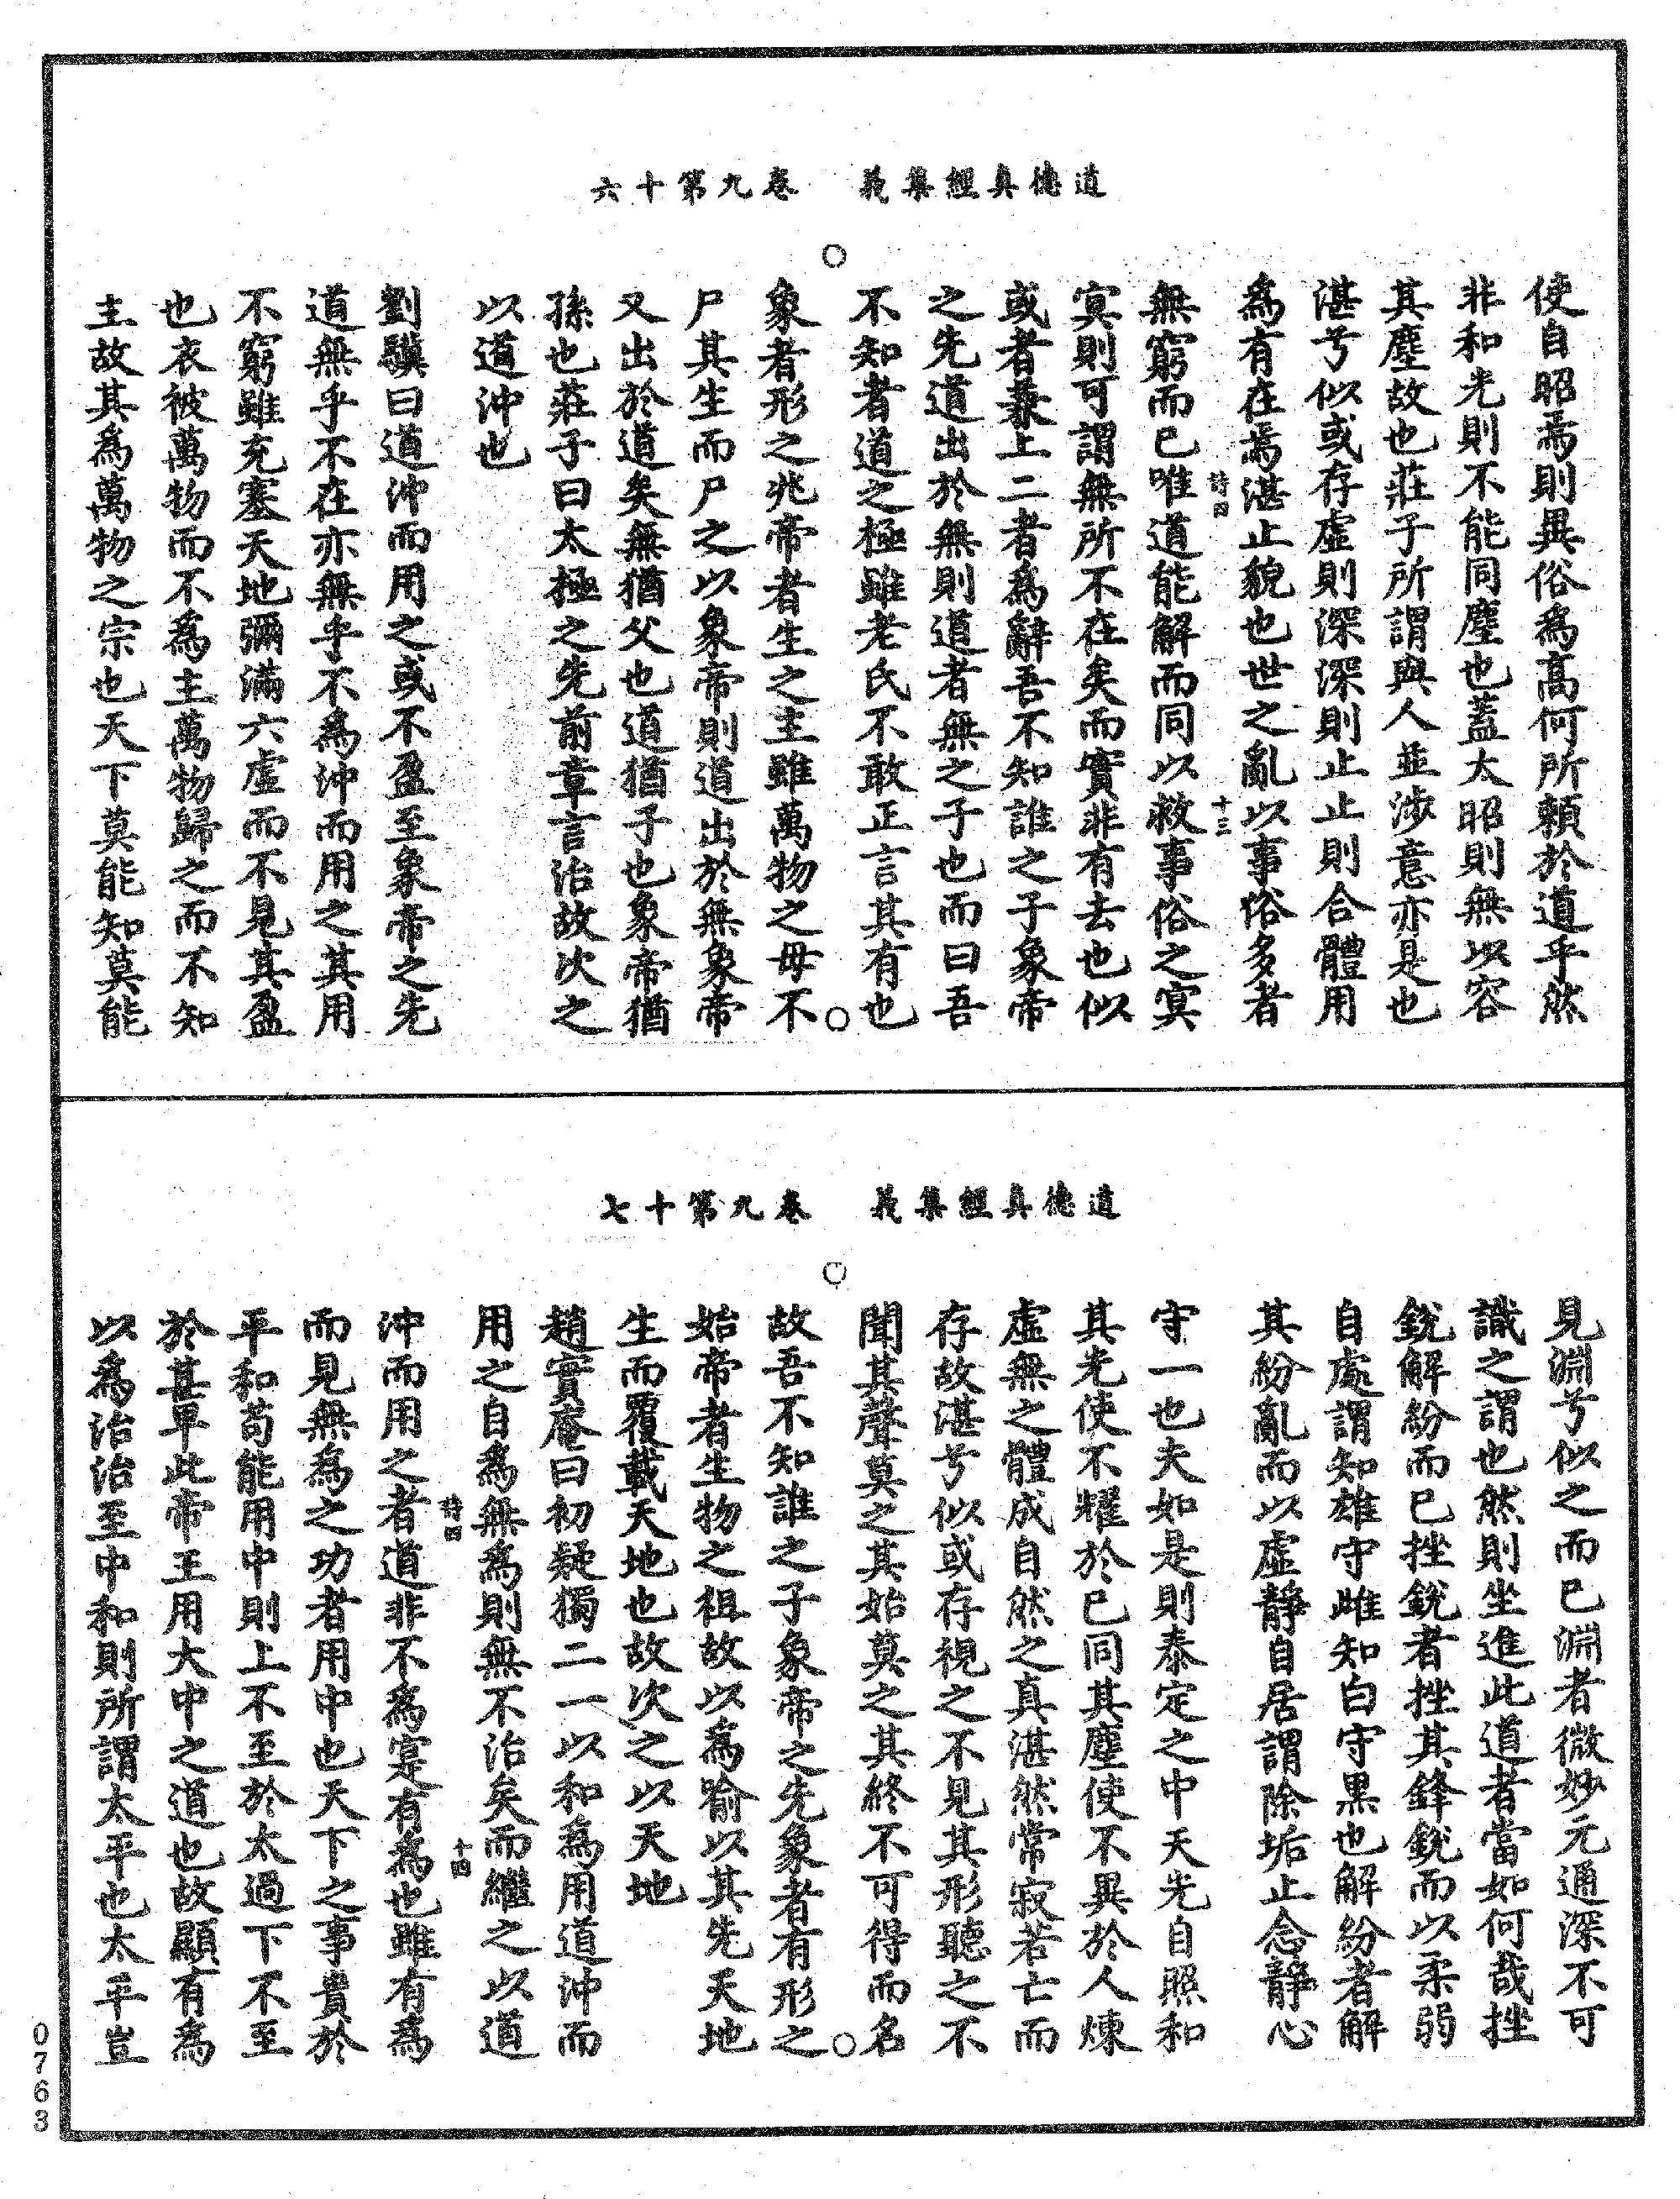 道德真經集義　卷九第十六
使自昭焉則異俗爲高何所賴於道乎然
非和光則不能同塵也蓋太昭則無以容
其塵故也莊子所謂與人並涉意亦是也
湛兮似或存虛則深深則止止則合體用
爲有在焉湛止貌也世之亂以事俗多者
詩四　十三
無窮而已唯道能解而同以救事俗之冥
冥則可謂無所不在矣而實非有去也似
或者兼上二者爲辭吾不知誰之子象帝
之先道出於無則道者無之子也而曰吾
不知者道之極雖老氏不敢正言其有也
象者形之兆帝者生之主雖萬物之母不
尸其生而尸之以象帝則道出於無象帝
又出於道矣無猶父也道猶子也象帝猶
孫也莊子曰太極之先前章言治故次之
以道沖也
劉驥曰道沖而用之或不盈至象帝之先
道無乎不在亦無乎不爲沖而用之其用
不窮雖充塞天地彌滿六虛而不見其盈
也衣被萬物而不爲主萬物歸之而不知
主故其爲萬物之宗也天下莫能知莫能
道德真經集義　卷九第十七
見淵兮似之而已淵者微妙元通深不可
識之謂也然則坐進此道者當如何哉挫
銳解紛而已挫銳者挫其鋒銳而以柔弱
自處謂知雄守雌知白守黑也解紛者解
其紛亂而以虛靜自居謂除垢止念靜心
守一也夫如是則泰定之中天光自照和
其光使不耀於已同其塵使不異於人煉
虛無之體成自然之真湛然常寂若亡而
存故湛兮似或存視之不見其形聽之不
聞其聲莫之其始莫之其終不可得而名
故吾不知誰之子象帝之先象者有形之
始帝者生物之祖故以爲喻以其先天地
生而覆載天地也故次之以天地
趙實庵曰初疑獨二一以和爲用道沖而
用之自爲無爲則無不治矣而繼之以道
詩四　十四
沖而用之者道非不爲寔有爲也雖有爲
而見無爲之功者用中也天下之事貴於
平和苟能用中則上不至於太過下不至
於甚卑此帝王用大中之道也故顯有爲
以爲治治至中和則所謂太平也太平豈
0763